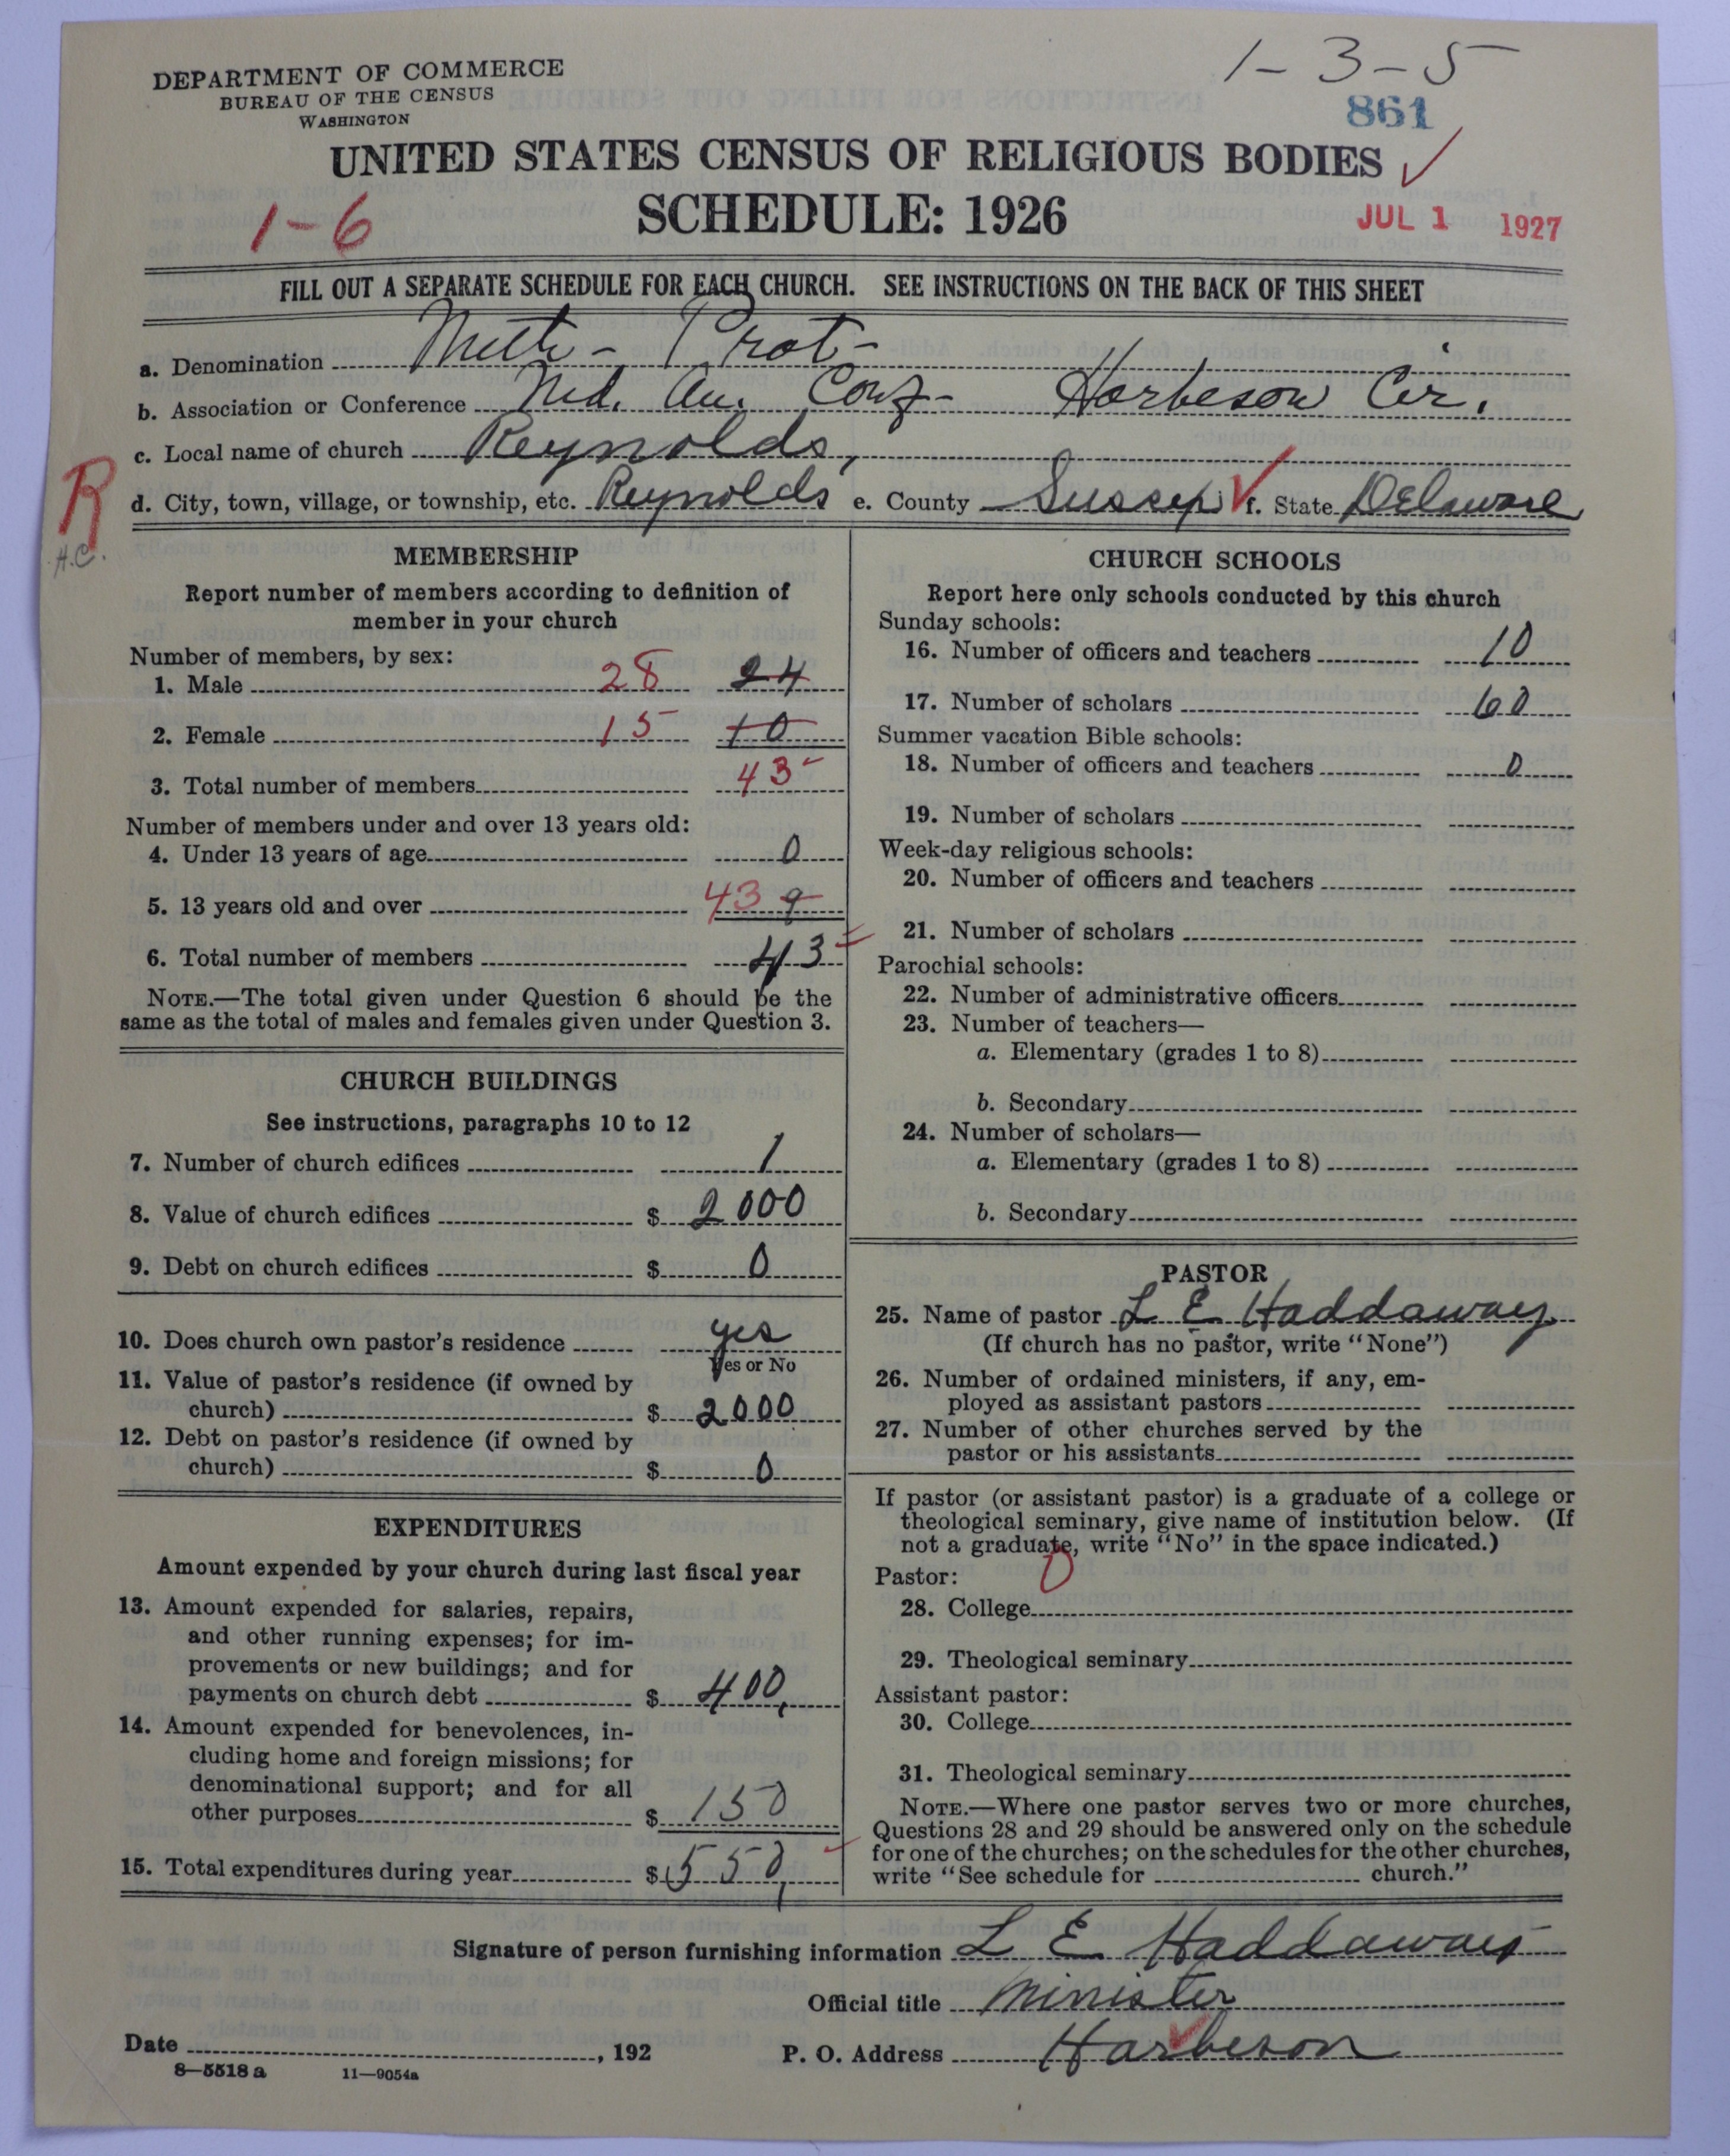 1-3-5
DEPARTMENT OF COMMERCE
BUREAU OF THE CENSUS
WASHINGTON
861
UNITED STATES CENSUS OF RELIGIOUS BODIES
1-6
SCHEDULE: 1926
JUL 1 1927
FILL OUT A SEPARATE SCHEDULE FOR EACH CHURCH. SEE INSTRUCTIONS ON THE BACK OF THIS SHEET
a. Denomination Meth- Prot-
b. Association or Conference Md. An. Conf- Harbeson Cir.
c. Local name of church Reynolds,
R
d. City, town, village, or township, etc. Reynolds e. County Sussex f. State Delaware
H.C.
MEMBERSHIP
Report number of members according to definition of
member in your church
Number of members, by sex:
1. Male 28 24
2. Female 15 10
3. Total number of members 43
Number of members under and over 13 years old:
4. Under 13 years of age 0
5. 13 years old and over 43 9
6. Total number of members 43
NOTE.—The total given under Question 6 should be the
same as the total of males and females given under Question 3.
CHURCH BUILDINGS
See instructions, paragraphs 10 to 12
7. Number of church edifices 1
8. Value of church edifices $ 2000
9. Debt on church edifices $ 0
10. Does church own pastor's residence yes
Yes or No
11. Value of pastor's residence (if owned by
church) $ 2000
12. Debt on pastor's residence (if owned by
church) $ 0
EXPENDITURES
Amount expended by your church during last fiscal year
13. Amount expended for salaries, repairs,
and other running expenses; for im-
provements or new buildings; and for
payments on church debt $ 400,
14. Amount expended for benevolences, in-
cluding home and foreign missions; for
denominational support; and for all
other purposes $ 150
15. Total expenditures during year $ 550,
CHURCH SCHOOLS
Report here only schools conducted by this church
Sunday schools:
16. Number of officers and teachers 10
17. Number of scholars 60
Summer vacation Bible schools:
18. Number of officers and teachers 0
19. Number of scholars
Week-day religious schools:
20. Number of officers and teachers
21. Number of scholars
Parochial schools:
22. Number of administrative officers
23. Number of teachers—
a. Elementary (grades 1 to 8)
b. Secondary
24. Number of scholars—
a. Elementary (grades 1 to 8)
b. Secondary
PASTOR
25. Name of pastor L E Haddaway
(If church has no pastor, write "None")
26. Number of ordained ministers, if any, em-
ployed as assistant pastors
27. Number of other churches served by the
pastor or his assistants
If pastor (or assistant pastor) is a graduate of a college or
theological seminary, give name of institution below. (If
not a graduate, write "No" in the space indicated.)
Pastor: 0
28. College
29. Theological seminary
Assistant pastor:
30. College
31. Theological seminary
NOTE.—Where one pastor serves two or more churches,
Questions 28 and 29 should be answered only on the schedule
for one of the churches; on the schedules for the other churches,
write "See schedule for church."
Signature of person furnishing information L E Haddaway
Official title Minister
Date , 192 P. O. Address Harbeson
8—5518 a 11—9054a